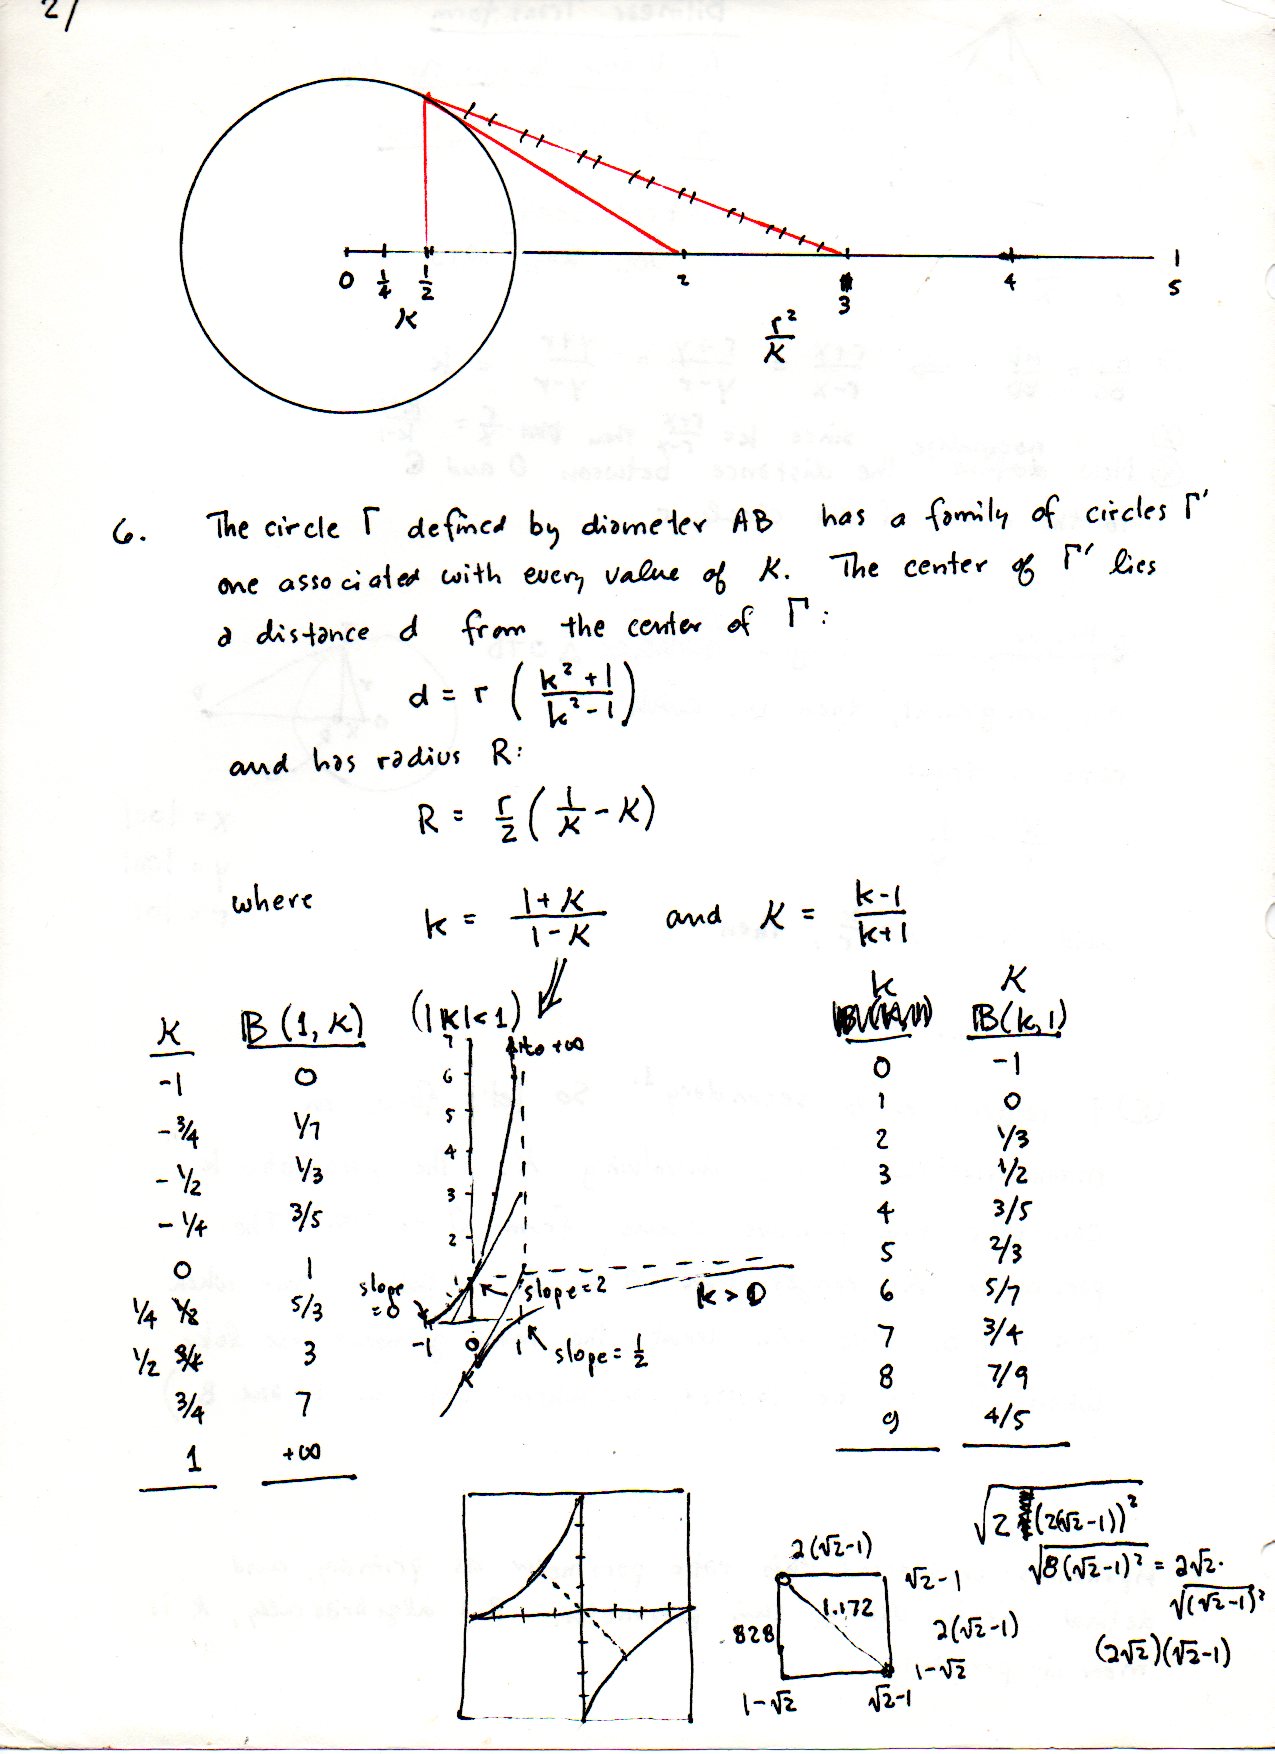 2/
0 1/4 1/2 2 3 4 5
K r²/K
6. The circle Γ defined by diameter AB has a family of circles Γ'
one associated with every value of K. The center of Γ' lies
a distance d from the center of Γ:
d = r ( (k²+1)/(k²-1) )
and has radius R:
R = r/2 ( 1/K - K )
where k = (1+K)/(1-K) and K = (k-1)/(k+1)
K B(1,K)
-1 0
-3/4 1/7
-1/2 1/3
-1/4 3/5
0 1
1/4 5/3
1/2 3
3/4 7
1 +∞
(|K|<1)
to +∞
7
6
5
4
3
2
1
slope = 0
slope = 2
k > 0
-1 0 1
slope = 1/2
K
k K
B(k,1)
0 -1
1 0
2 1/3
3 1/2
4 3/5
5 2/3
6 5/7
7 3/4
8 7/9
9 4/5
2(√2-1)
√2-1
1.172
828
2(√2-1)
1-√2
1-√2 √2-1
√2 (2(√2-1))²
√8(√2-1)² = 2√2·
√(√2-1)²
(2√2)(√2-1)